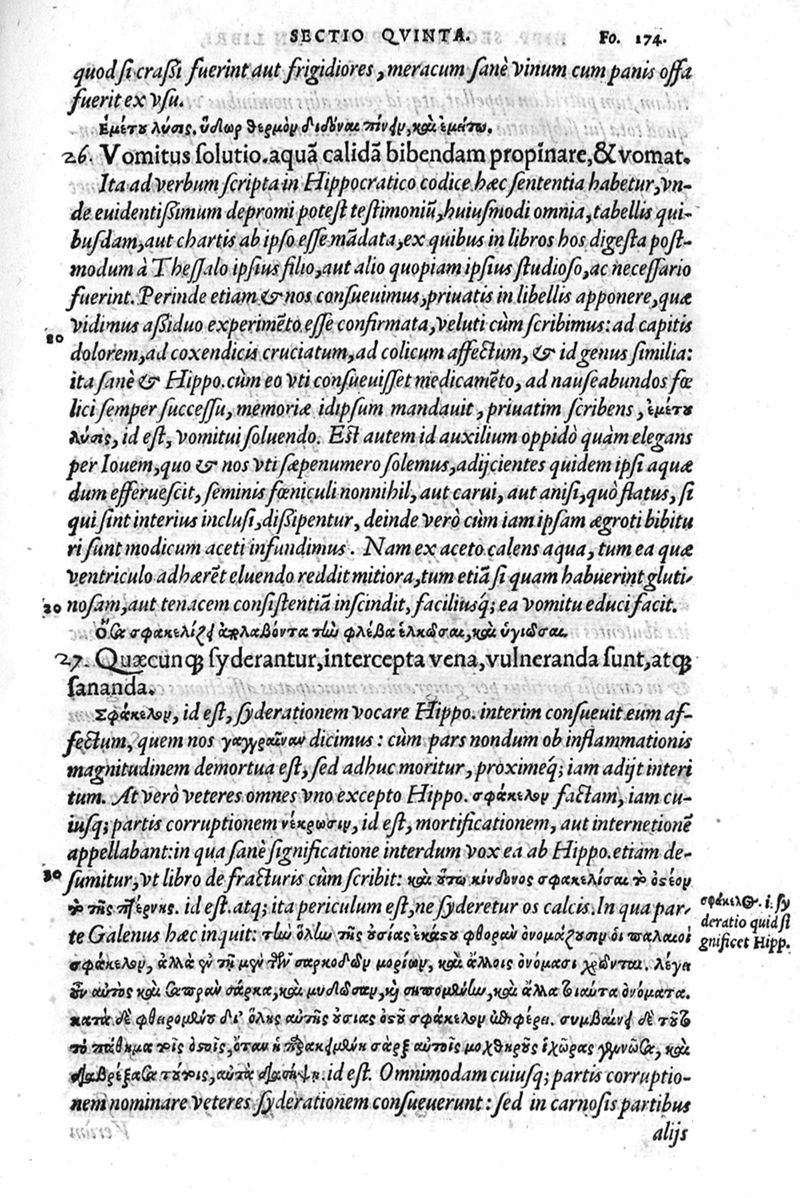 SECTIO QVINTA. Fo. 174.
quod si craßi fuerint aut frigidiores, meracum sanè vinum cum panis offa
fuerit ex vsu.
Εμέτου λύσις. ὕδωρ θερμὸν διδόναι πίνειν, καὶ ἐμείτω.
26. Vomitus solutio. aquā calidā bibendam propinare, & vomat.
Ita ad verbum scripta in Hippocratico codice hæc sententia habetur, vn-
de euidentißimum depromi potest testimoniū, huiusmodi omnia, tabellis qui-
busdam, aut chartis ab ipso esse mādata, ex quibus in libros hos digesta post-
modum à Thessalo ipsius filio, aut alio quopiam ipsius studioso, ac necessario
fuerint. Perinde etiam & nos consueuimus, priuatis in libellis apponere, quæ
vidimus aßiduo experimēto esse confirmata, veluti cùm scribimus: ad capitis
20
dolorem, ad coxendicis cruciatum, ad colicum affectum, & id genus similia:
ita sanè & Hippo. cùm eo vti consueuisset medicamēto, ad nauseabundos fœ
lici semper successu, memoriæ idipsum mandauit, priuatim scribens, ἐμέτου
λύσις, id est, vomitui soluendo. Est autem id auxilium oppidò quàm elegans
per Iouem, quo & nos vti sæpenumero solemus, adijcientes quidem ipsi aquæ
dum efferuescit, seminis fœniculi nonnihil, aut carui, aut anisi, quò flatus, si
qui sint interius inclusi, dißipentur, deinde verò cùm iam ipsam ægroti bibitu
ri sunt modicum aceti infundimus. Nam ex aceto calens aqua, tum ea quæ
ventriculo adhærēt eluendo reddit mitiora, tum etiā si quam habuerint gluti-
20 nosam, aut tenacem consistentiā inscindit, faciliusq; ea vomitu educi facit.
Ὅσα σφακελίζει ἀπολαβόντα τὼ φλέβα ἑλκῶσαι, καὶ ὑγιῶσαι.
27. Quæcunq; syderantur, intercepta vena, vulneranda sunt, atq;
sananda.
Σφάκελον, id est, syderationem vocare Hippo. interim consueuit eum af-
fectum, quem nos γαγγραῖναν dicimus: cùm pars nondum ob inflammationis
magnitudinem demortua est, sed adhuc moritur, proximeq; iam adijt interi
tum. At verò veteres omnes vno excepto Hippo. σφάκελον factam, iam cu-
iusq; partis corruptionem νέκρωσιν, id est, mortificationem, aut internetionē
appellabant: in qua sanè significatione interdum vox ea ab Hippo. etiam de-
30 sumitur, vt libro de fracturis cùm scribit: καὶ οὕτω κίνδυνος σφακελίσαι τὸ ὀστέον
τὸ τῆς πτέρνης. id est. atq; ita periculum est, ne syderetur os calcis. In qua par-
te Galenus hæc inquit: τὼ ὅλὼ τῆς οὐσίας ἑκάστου φθορὰν ὀνομάζουσιν οἱ παλαιοὶ
σφάκελον, ἀλλὰ ἐν τῇ μὲν τῶν σαρκωδῶν μορίων, καὶ ἄλλοις ὀνόμασι χρῶνται. λέγει
οὖν αὐτὸς καὶ σαπρὰν σάρκα, καὶ μυδῶσαν, καὶ σηπομένὼ, καὶ ἄλλα τοιαῦτα ὀνόματα.
κατὰ δὲ φθειρομένου δι' ὅλης αὐτῆς οὐσίας ὀστοῦ σφάκελον ἐπιφέρει. συμβαίνει δὲ τοῦτο
τὸ πάθημα τοῖς ὀστοῖς, ὅταν ἡ περικειμένη σὰρξ αὐτοῖς μοχθηροὺς ἰχῶρας γεννῶσα, καὶ
διαβρέξασα τούτοις, αὐτὰ διασήψῃ: id est. Omnimodam cuiusq; partis corruptio-
nem nominare veteres syderationem consueuerunt: sed in carnosis partibus
alijs
σφάκελος. i. sy
deratio quid si
gnificet Hipp.